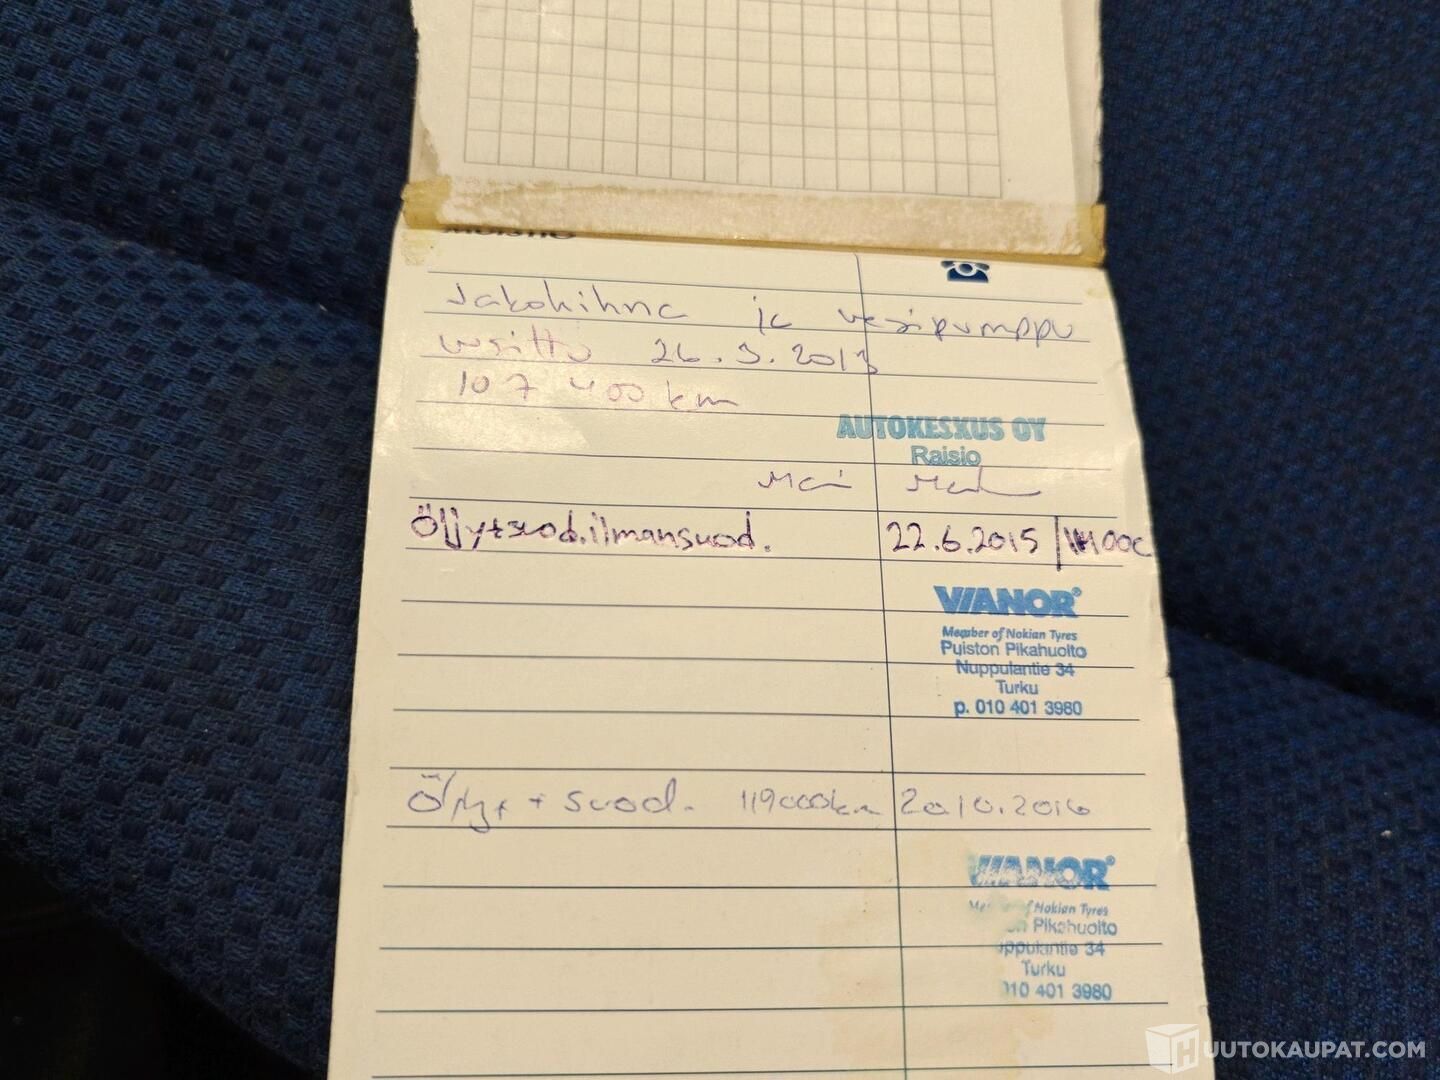 Jakohihna ja vesipumppu
uusittu 26.3.2013
107 400 km
AUTOKESKUS OY
Raisio
Öljyt+suod.ilmansuod. 22.6.2015
VIANOR®
Member of Nokian Tyres
Puiston Pikahuolto
Nuppulantie 34
Turku
p. 010 401 3980
Öljyt + suod. 119000km 20.10.2016
VIANOR®
of Nokian Tyres
Pikahuolto
34
Turku
010 401 3980
HUUTOKAUPAT.COM